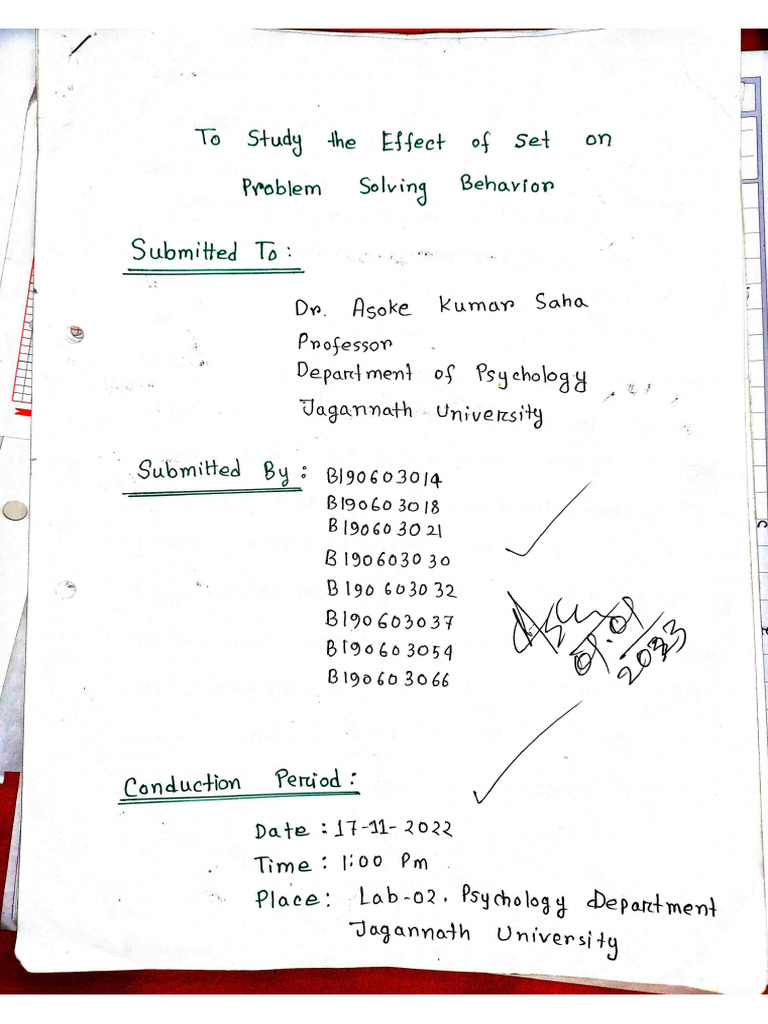 To Study the Effect of Set on
Problem Solving Behavior
Submitted To :
Dr. Asoke Kumar Saha
Professor
Department of Psychology
Jagannath University
Submitted By :
B190603014
B190603018
B190603021
B190603030
B190603032
B190603037
B190603054
B190603066
Conduction Period :
Date : 17-11-2022
Time : 1:00 Pm
Place : Lab-02, Psychology Department
Jagannath University